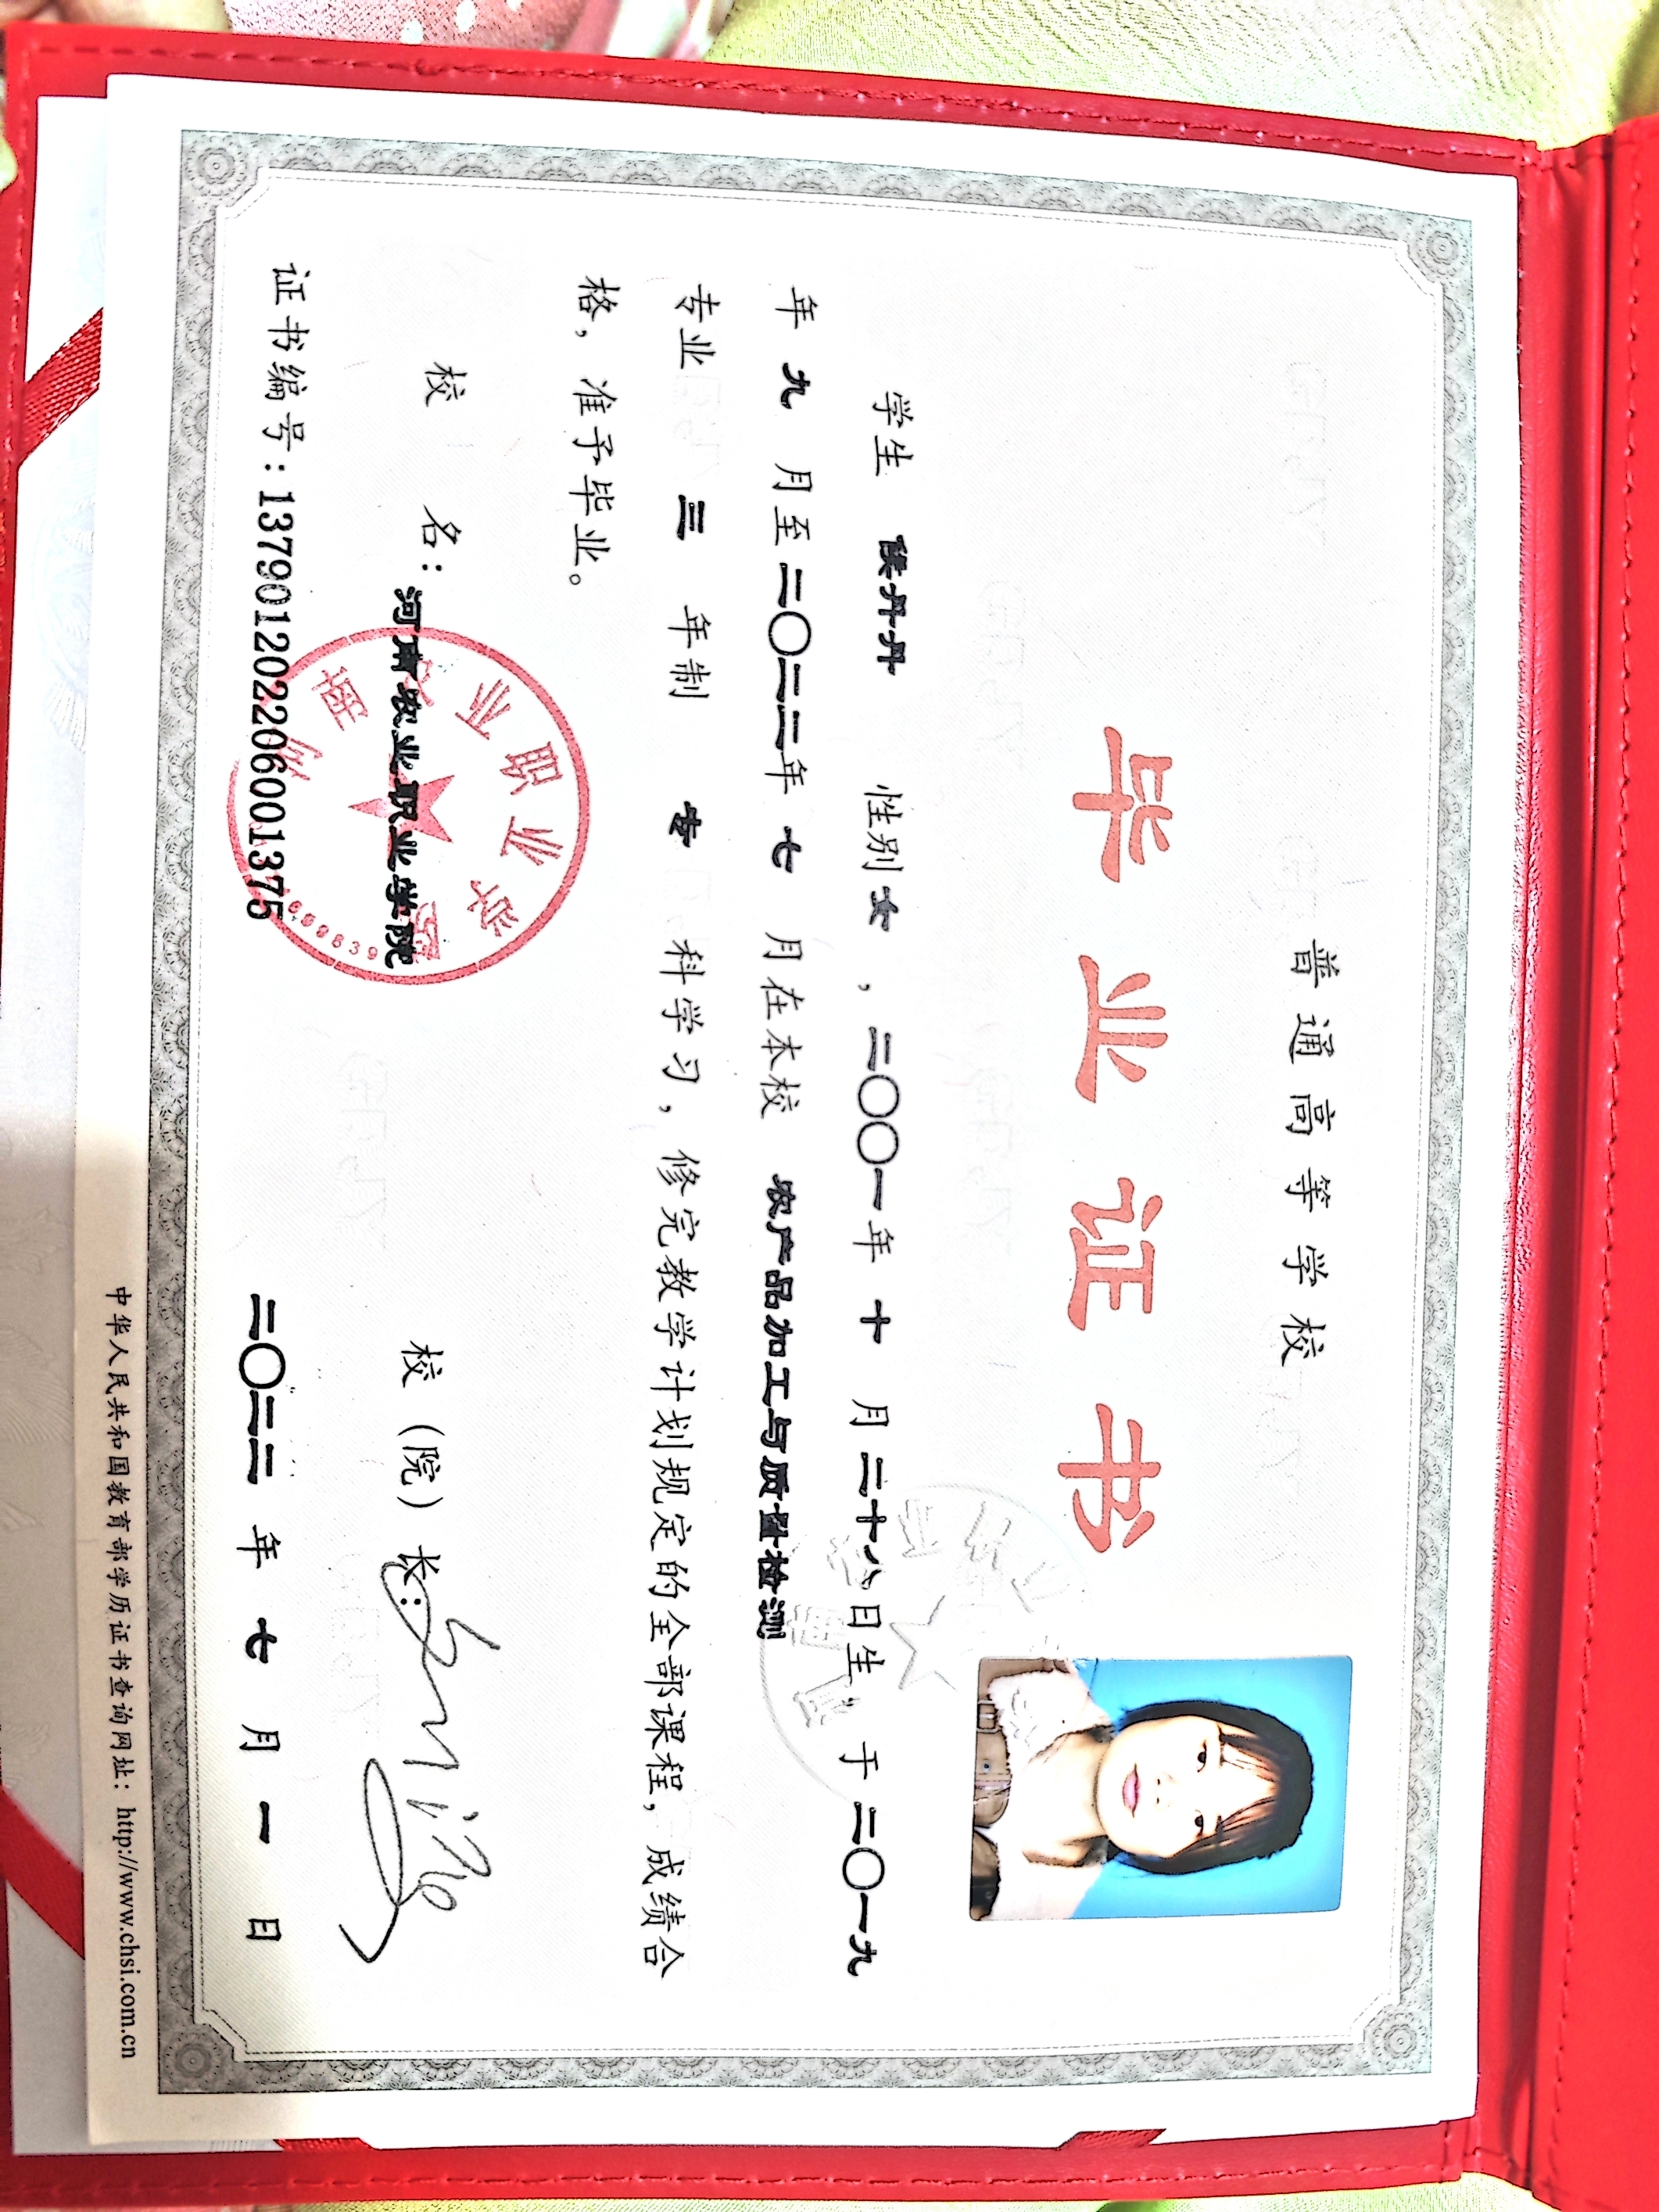 普通高等学校
毕业证书
学生 陕丹丹 性别 女 ，二〇〇一年 十 月 二十八日生，于 二〇一九
年 九 月至 二〇二二年 七 月在本校 农产品加工与质量检测
专业 三 年制 专 科学习，修完教学计划规定的全部课程，成绩合
格，准予毕业。
校 名：河南农业职业学院
校（院）长：
证书编号：137901202206001375
二〇二二 年 七 月 一 日
中华人民共和国教育部学历证书查询网址：http://www.chsi.com.cn